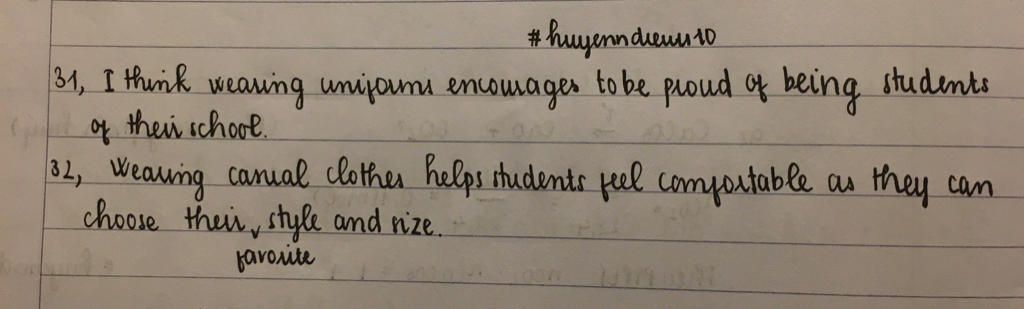 #huyenndieuu10
31, I think wearing uniforms encourages to be proud of being students
of their school.
32, Wearing casual clothes helps students feel comfortable as they can
choose their ᵥ style and size.
favorite